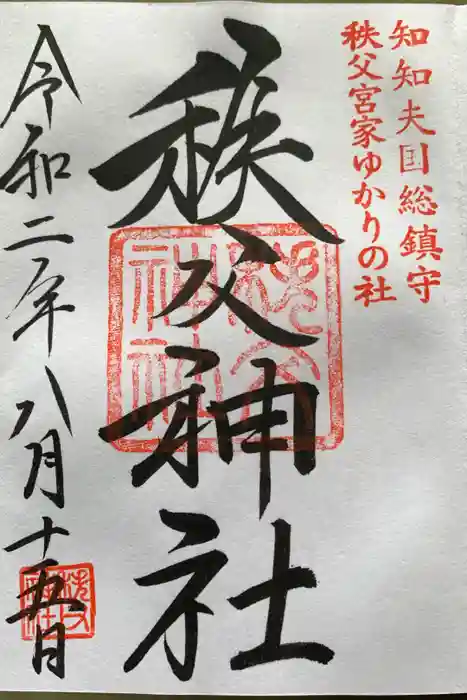 知知夫国総鎮守
秩父宮家ゆかりの社
秩父神社
令和二年八月十五日
秩父
神社